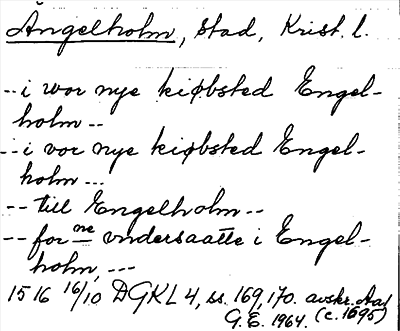 Ängelholm, stad, Krist. l.
-- i wor nye kiøbsted Engel-
holm --
-- i vor nye kiøbsted Engel-
holm ---
-- till Engelholm --
-- for ne vndersaatte i Engel-
holm, ---
1516 16/10, DGKL 4, ss. 169, 170. avskr. Aaf
G.E. 1964. (c. 1695)